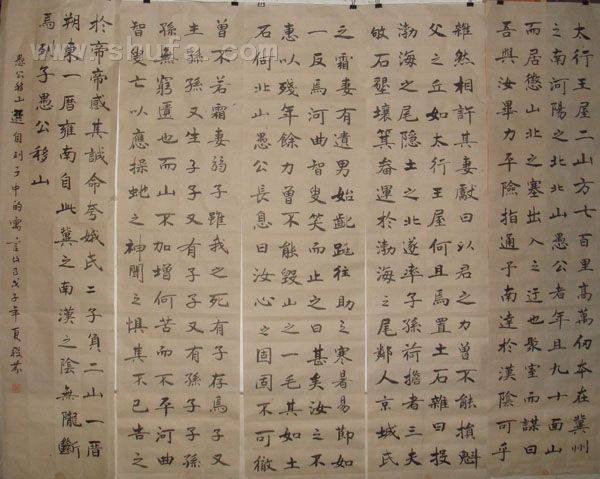 太行王屋二山方七百里高萬仞本在冀州
之南河陽之北北山愚公者年且九十面山
而居懲山北之塞出入之迂也聚室而謀曰
吾與汝畢力平險指通予南達於漢陰可乎
雜然相許其妻獻曰以君之力曾不能損魁
父之丘如太行王屋何且焉置土石雜曰投
渤海之尾隱土之北遂率子孫荷擔者三夫
敂石墾壤箕畚運於渤海之尾鄰人京城氏
之霜妻有遺男始齔跳往助之寒暑易節如
一反焉河曲智叟笑而止之曰甚矣汝之不
惠以殘年餘力曾不能毀山之一毛其如土
石何北山愚公長息曰汝心之固固不可徹
曾不若霜妻弱子雖我之死有子存焉子又
生孫孫又生子子又有子子又有孫子子孫
孫無窮匱也而山不加增何苦而不平河曲
智叟亡以應操蛇之神聞之懼其不已告之
於帝帝感其誠命夸娥氏二子負二山一厝
朔東一厝雍南自此冀之南漢之陰無隴斷
焉列子愚公移山
愚公移山選自列子中的寓言戊子年夏
www.shufa.com